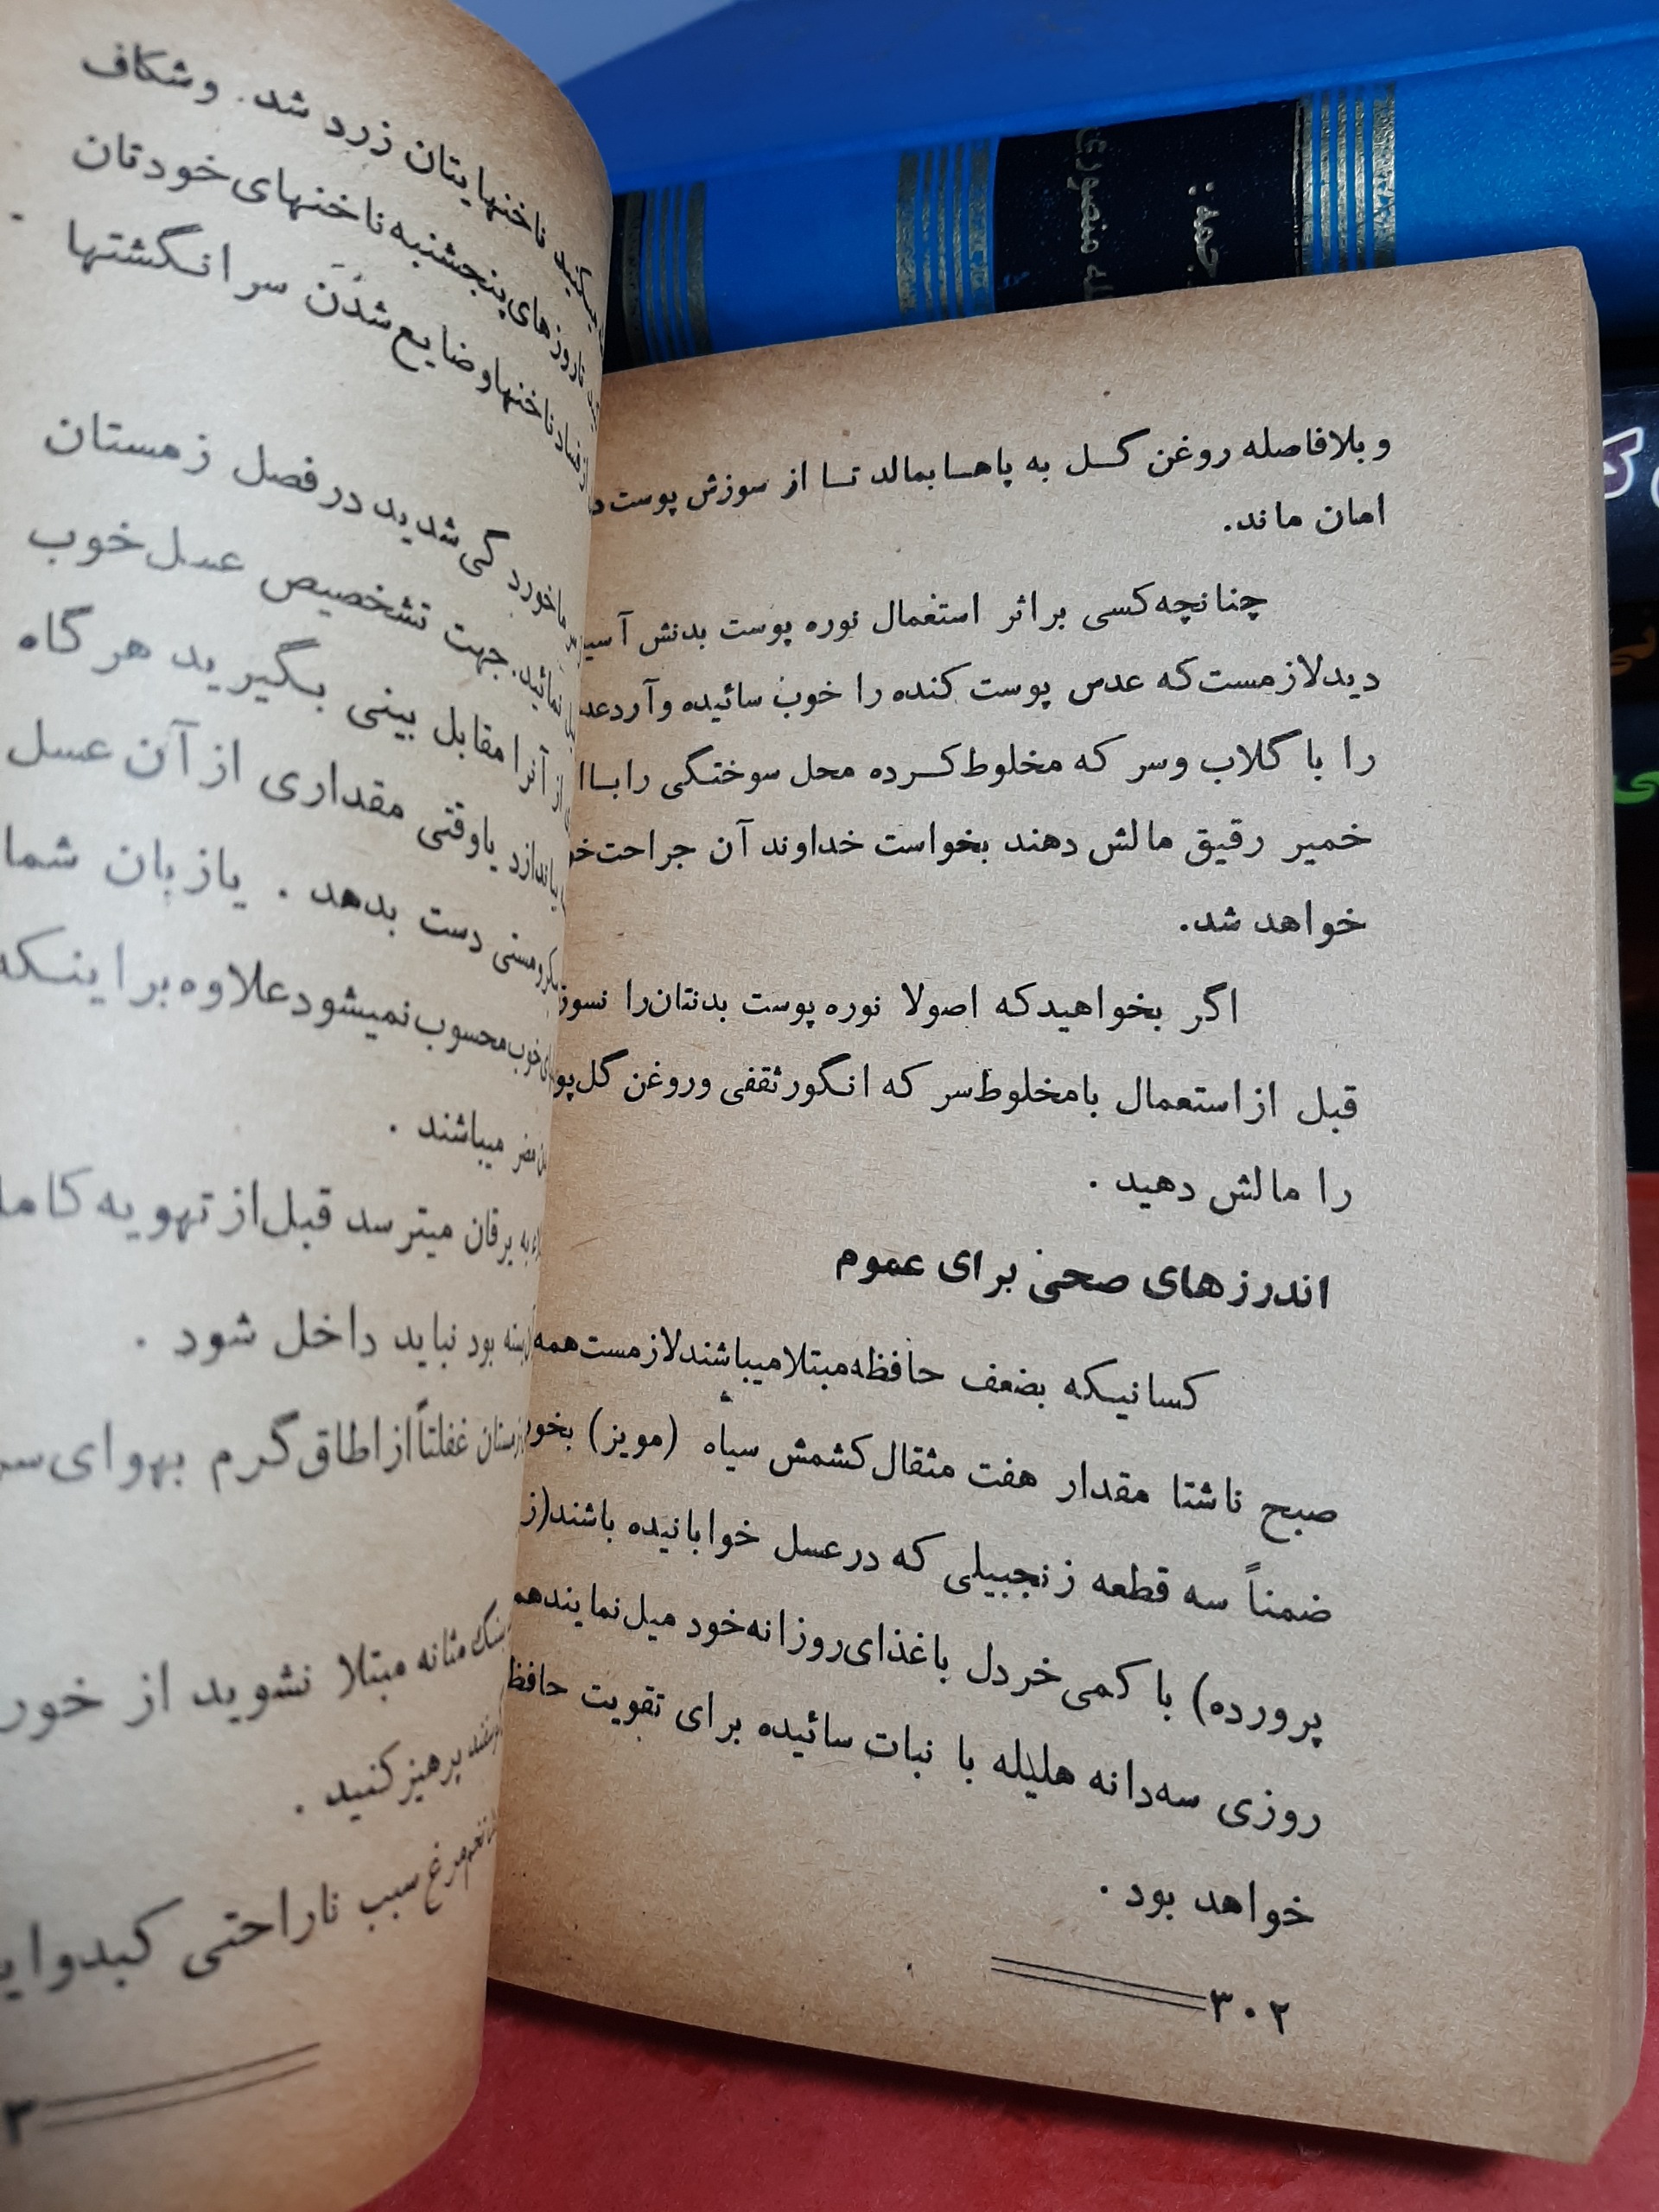 و بلافاصله روغن گـل به پاهـا بمالد تـا از سوزش پوست
امان ماند.
چنانچه کسی بر اثر استعمال نوره پوست بدنش
دید لازمست که عدس پوست کنده را خوب سائیده و آرد
را با گلاب و سر که مخلوط کـرده محل سوختگی را
خمیر رقیق مالش دهند بخواست خداوند آن جراحت
خواهد شد.
اگر بخواهید که اصولا نوره پوست بدنتان را
قبل از استعمال با مخلوط سر که انگور ثقفی و روغن گل
را مالش دهید .
اندرزهای صحی برای عموم
کسانیکه بضعف حافظه مبتلا میباشند لازمست همه
صبح ناشتا مقدار هفت مثقال کشمش سیاه (مویز)
ضمناً سه قطعه زنجبیلی که در عسل خوابانیده باشند
پرورده) با کمی خردل با غذای روزانه خود میل نمایند
روزی سه دانه هلیله با نبات سائیده برای تقویت
خواهد بود .
۳۰۲
ناخنهایتان زرد شد. و شکاف
تا روزهای پنجشنبه ناخنهای خودتان
ناخنها و ضایع شدن سر انگشتها
شدید در فصل زمستان
جهت تشخیص عسل خوب
آنرا مقابل بینی بگیرید هر گاه
یا وقتی مقداری از آن عسل
دست بدهد . یا زبان شما
خوب محسوب نمیشود علاوه بر اینکه
مضر میباشند .
به یرقان میترسد قبل از تهویه
بود نباید داخل شود .
غفلتاً از اطاق گرم بهوای
مثانه مبتلا نشوید از
پرهیز کنید .
سبب ناراحتی کبد و